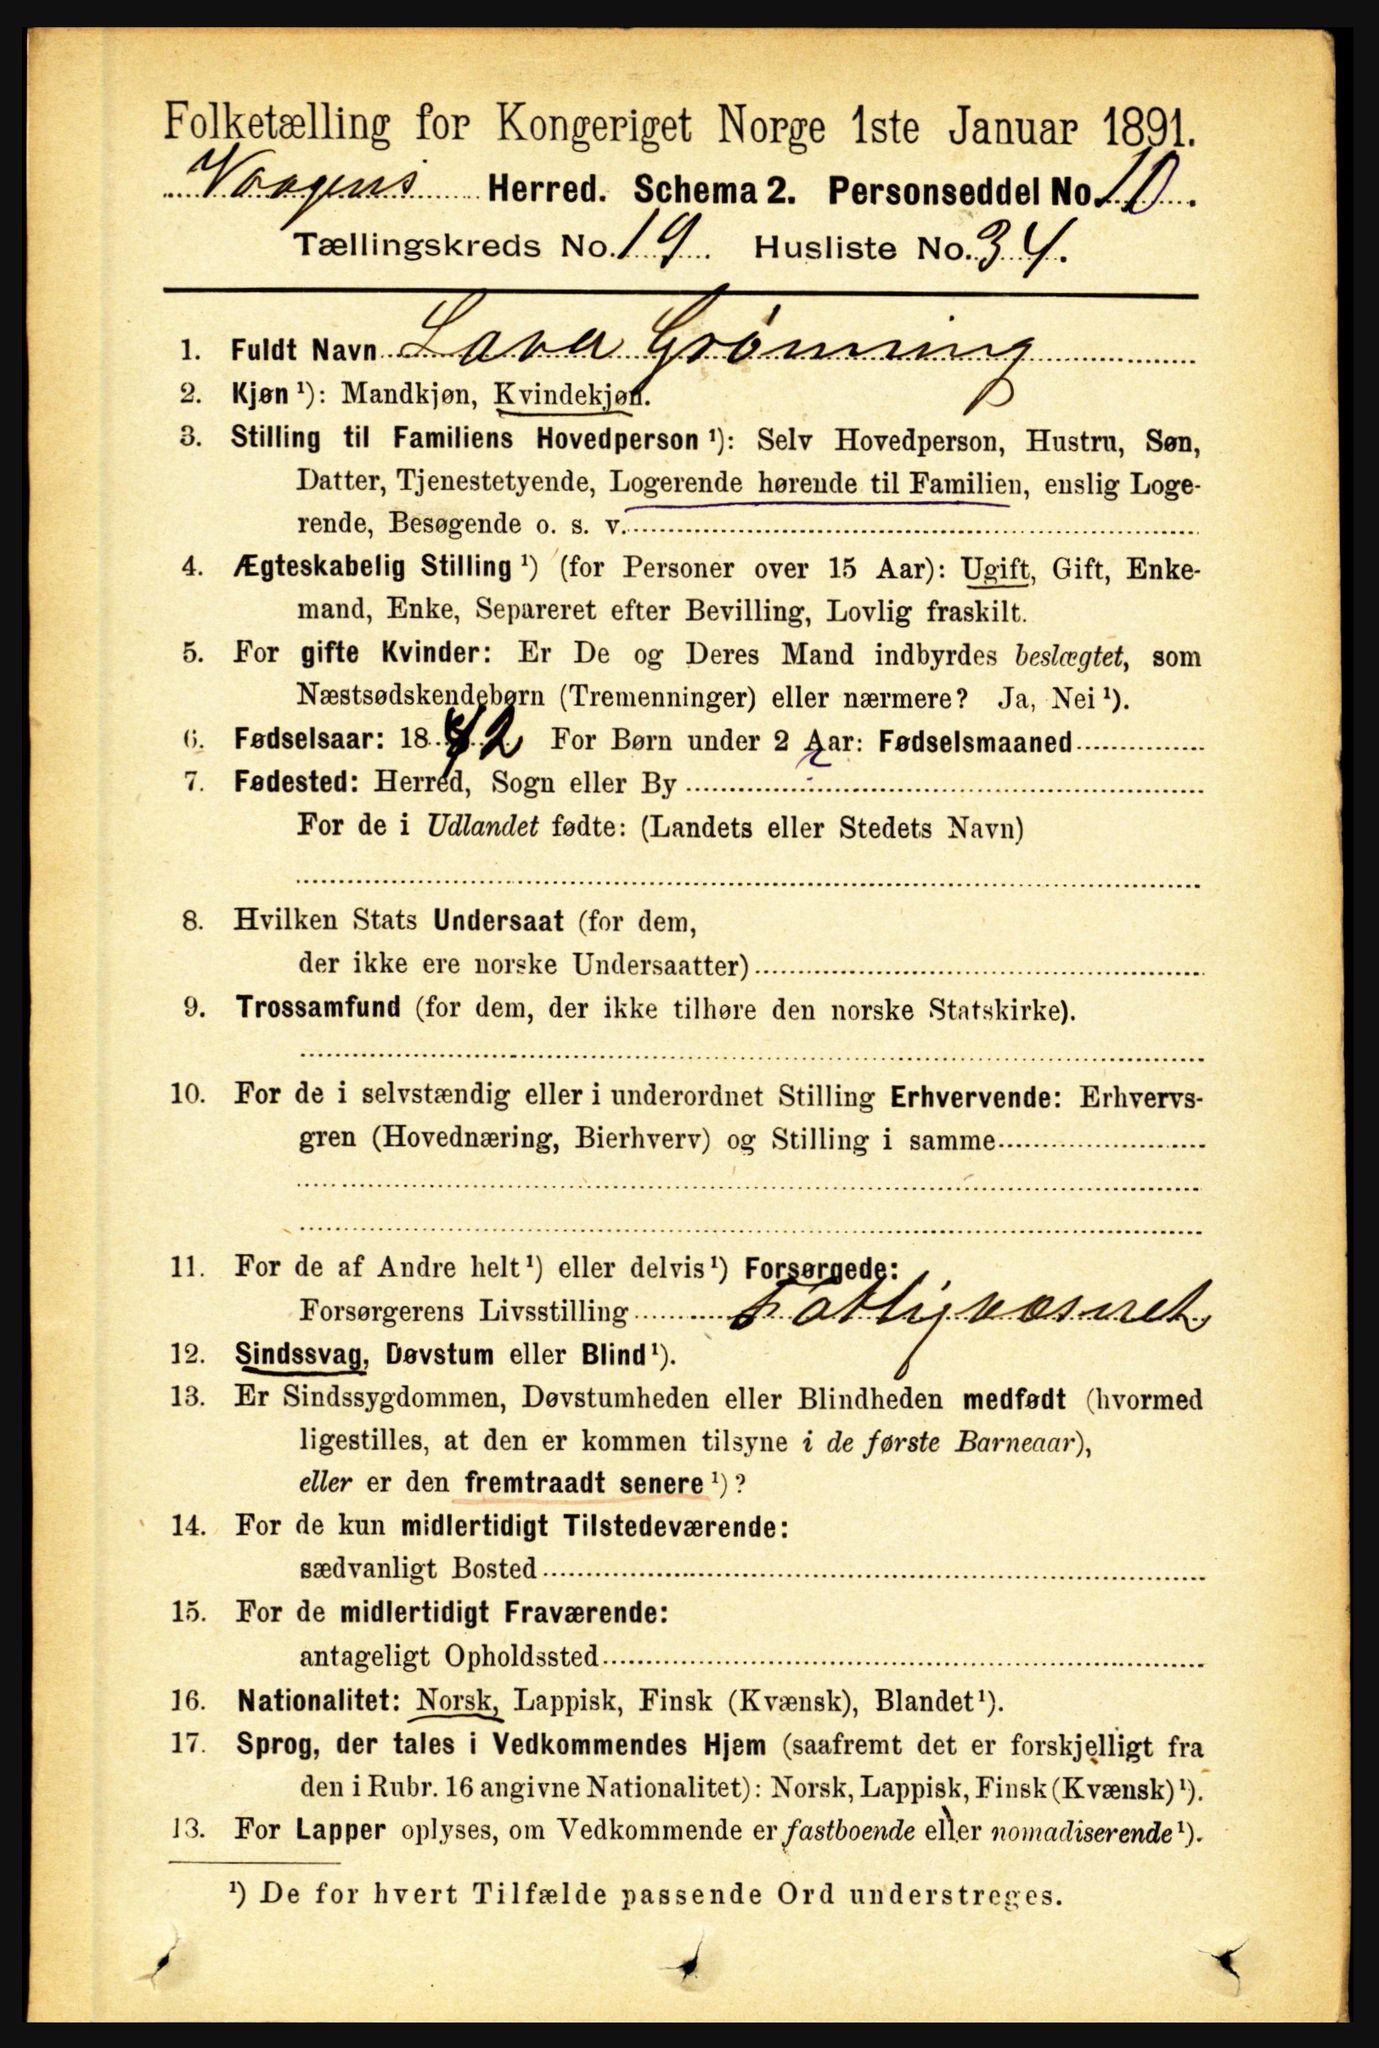 Folketælling for Kongeriget Norge 1ste Januar 1891.
Vaagens Herred. Schema 2. Personseddel No. 10.
Tællingskreds No. 19. Husliste No. 34.
1. Fuldt Navn Lava Grønning
2. Kjøn ¹): Mandkjøn, Kvindekjøn.
3. Stilling til Familiens Hovedperson ¹): Selv Hovedperson, Hustru, Søn,
Datter, Tjenestetyende, Logerende hørende til Familien, enslig Loge-
rende, Besøgende o. s. v.
4. Ægteskabelig Stilling ¹) (for Personer over 15 Aar): Ugift, Gift, Enke-
mand, Enke, Separeret efter Bevilling, Lovlig fraskilt.
5. For gifte Kvinder: Er De og Deres Mand indbyrdes beslægtet, som
Næstsødskendebørn (Tremenninger) eller nærmere? Ja, Nei ¹).
6. Fødselsaar: 1842 For Børn under 2 Aar: Fødselsmaaned
7. Fødested: Herred, Sogn eller By
For de i Udlandet fødte: (Landets eller Stedets Navn)
8. Hvilken Stats Undersaat (for dem,
der ikke ere norske Undersaatter)
9. Trossamfund (for dem, der ikke tilhøre den norske Statskirke).
10. For de i selvstændig eller i underordnet Stilling Erhvervende: Erhvervs-
gren (Hovednæring, Bierhverv) og Stilling i samme
11. For de af Andre helt ¹) eller delvis ¹) Forsørgede:
Forsørgerens Livsstilling Fattigvæsnet
12. Sindssvag, Døvstum eller Blind ¹).
13. Er Sindssygdommen, Døvstumheden eller Blindheden medfødt (hvormed
ligestilles, at den er kommen tilsyne i de første Barneaar),
eller er den fremtraadt senere ¹)?
14. For de kun midlertidigt Tilstedeværende:
sædvanligt Bosted
15. For de midlertidigt Fraværende:
antageligt Opholdssted
16. Nationalitet: Norsk, Lappisk, Finsk (Kvænsk), Blandet ¹).
17. Sprog, der tales i Vedkommendes Hjem (saafremt det er forskjelligt fra
den i Rubr. 16 angivne Nationalitet): Norsk, Lappisk, Finsk (Kvænsk) ¹).
13. For Lapper oplyses, om Vedkommende er fastboende eller nomadiserende ¹).
¹) De for hvert Tilfælde passende Ord understreges.